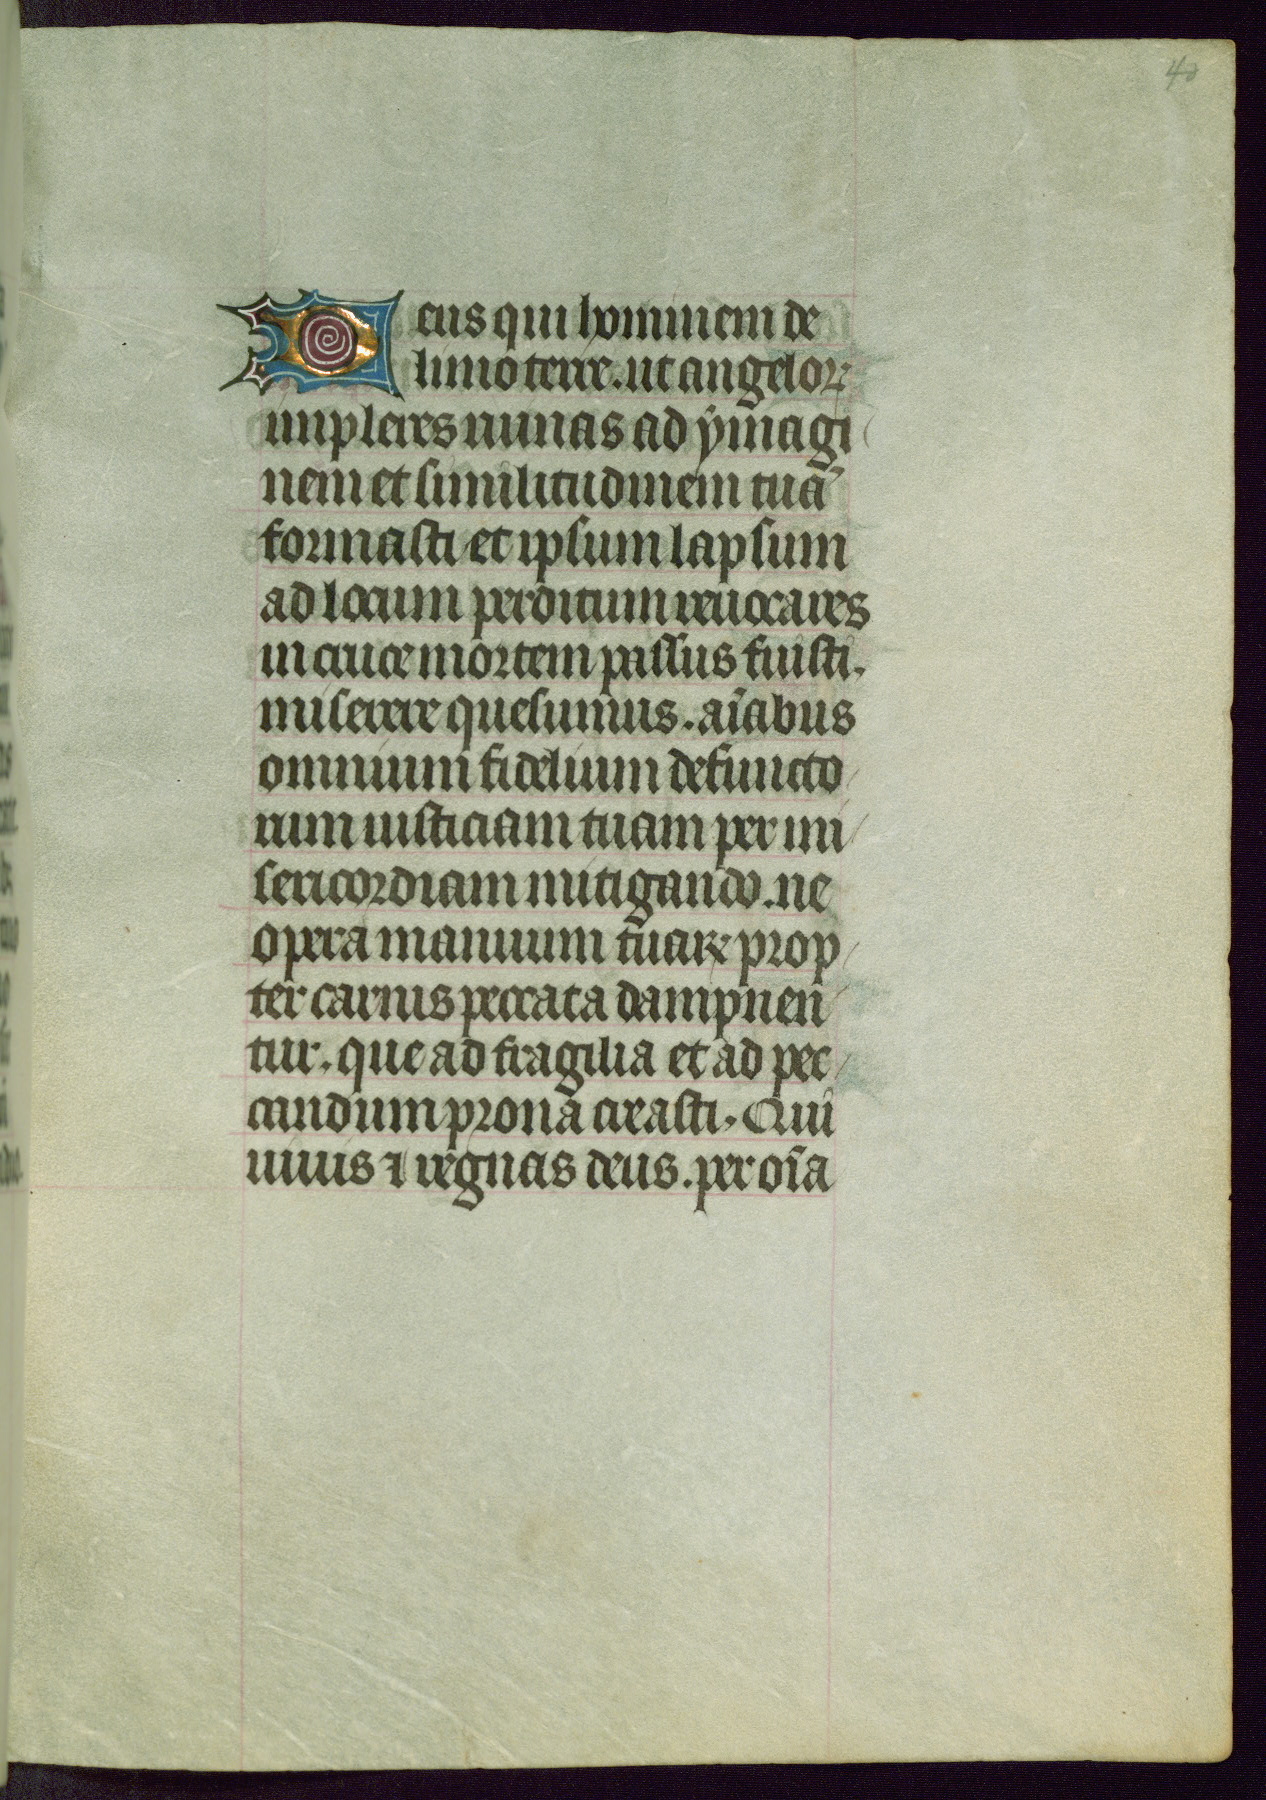 40
Deus qui hominem de
limo terre. ut angeloꝝ
impleres ruinas ad ymagi
nem et similitudinem tuā
formasti et ipsum lapsum
ad locum perditum reuocares
in cruce mortem passus fuisti.
miserere quesumus. aīabus
omnium fidelium defuncto
rum iusticiam tuam per mi
sericordiam mitigando. ne
opera manuum tuaꝝ prop
ter carnis peccata dampnen
tur. que ad fragilia et ad pec
candum prona creasti. Qui
uiuis ⁊ regnas deus. per oīa